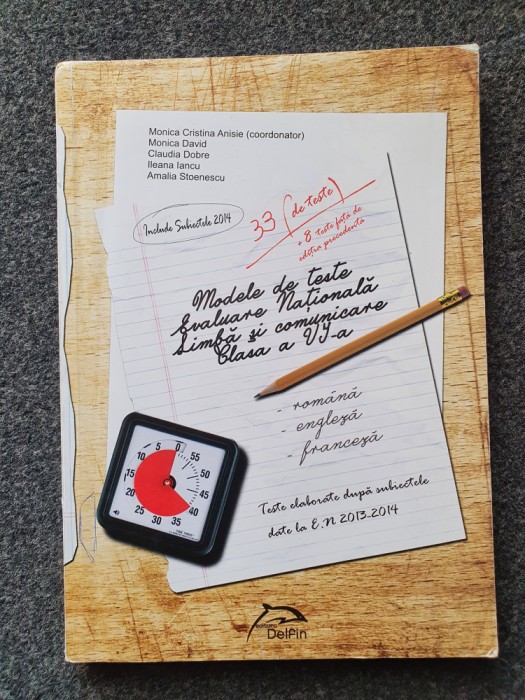 Monica Cristina Anisie (coordonator)
Monica David
Claudia Dobre
Ileana Iancu
Amalia Stoenescu
Include Subiectele 2014
33 (de teste)
+ 8 teste față de
ediția precedentă
Modele de teste
Evaluare Națională
Limbă și comunicare
Clasa a VI-a
- română
- engleză
- franceză
Teste elaborate după subiectele
date la E.N 2013-2014
0
5
10
15
20
25
30
35
40
45
50
55
editura
Delfin